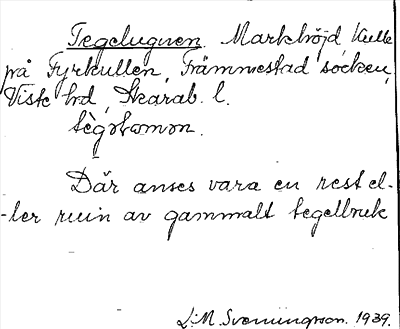 Tegelugnen. Markhöjd, kulle
på Fyrkullen, Främmestad socken,
Viste hd, Skarab. l.
Där anses vara en rest el-
-ler ruin av gammalt tegelbruk
L. M. Svenningsson. 1939.